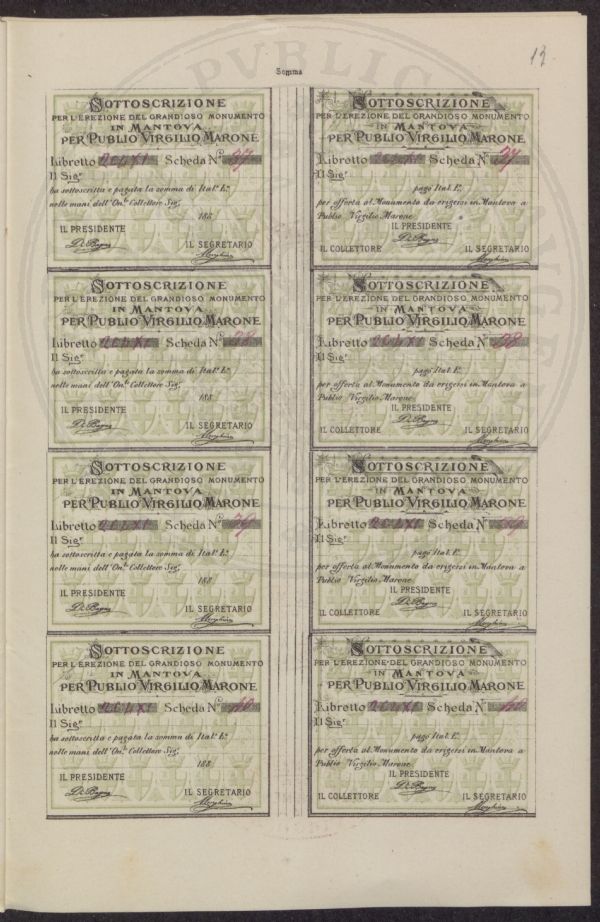 13
Somma
SOTTOSCRIZIONE
PER L'EREZIONE DEL GRANDIOSO MONUMENTO
IN MANTOVA
PER PUBLIO VIRGILIO MARONE
Libretto CCLXI Scheda N.º 37
Il Sig.r
ha sottoscritta e pagata la somma di Ital. L.e
nelle mani dell'On.le Collettore Sig.r
188
IL PRESIDENTE
IL SEGRETARIO
SOTTOSCRIZIONE
PER L'EREZIONE DEL GRANDIOSO MONUMENTO
IN MANTOVA
PER PUBLIO VIRGILIO MARONE
Libretto CCLXI Scheda N.º 37
Il Sig.r
pagò Ital. L.e
per offerta al Monumento da erigersi in Mantova a
Publio Virgilio Marone
IL PRESIDENTE
IL COLLETTORE IL SEGRETARIO
SOTTOSCRIZIONE
PER L'EREZIONE DEL GRANDIOSO MONUMENTO
IN MANTOVA
PER PUBLIO VIRGILIO MARONE
Libretto CCLXI Scheda N.º 38
Il Sig.r
ha sottoscritta e pagata la somma di Ital. L.e
nelle mani dell'On.le Collettore Sig.r
188
IL PRESIDENTE
IL SEGRETARIO
SOTTOSCRIZIONE
PER L'EREZIONE DEL GRANDIOSO MONUMENTO
IN MANTOVA
PER PUBLIO VIRGILIO MARONE
Libretto CCLXI Scheda N.º 38
Il Sig.r
pagò Ital. L.e
per offerta al Monumento da erigersi in Mantova a
Publio Virgilio Marone
IL PRESIDENTE
IL COLLETTORE IL SEGRETARIO
SOTTOSCRIZIONE
PER L'EREZIONE DEL GRANDIOSO MONUMENTO
IN MANTOVA
PER PUBLIO VIRGILIO MARONE
Libretto CCLXI Scheda N.º 39
Il Sig.r
ha sottoscritta e pagata la somma di Ital. L.e
nelle mani dell'On.le Collettore Sig.r
188
IL PRESIDENTE
IL SEGRETARIO
SOTTOSCRIZIONE
PER L'EREZIONE DEL GRANDIOSO MONUMENTO
IN MANTOVA
PER PUBLIO VIRGILIO MARONE
Libretto CCLXI Scheda N.º 39
Il Sig.r
pagò Ital. L.e
per offerta al Monumento da erigersi in Mantova a
Publio Virgilio Marone
IL PRESIDENTE
IL COLLETTORE IL SEGRETARIO
SOTTOSCRIZIONE
PER L'EREZIONE DEL GRANDIOSO MONUMENTO
IN MANTOVA
PER PUBLIO VIRGILIO MARONE
Libretto CCLXI Scheda N.º 40
Il Sig.r
ha sottoscritta e pagata la somma di Ital. L.e
nelle mani dell'On.le Collettore Sig.r
188
IL PRESIDENTE
IL SEGRETARIO
SOTTOSCRIZIONE
PER L'EREZIONE DEL GRANDIOSO MONUMENTO
IN MANTOVA
PER PUBLIO VIRGILIO MARONE
Libretto CCLXI Scheda N.º 40
Il Sig.r
pagò Ital. L.e
per offerta al Monumento da erigersi in Mantova a
Publio Virgilio Marone
IL PRESIDENTE
IL COLLETTORE IL SEGRETARIO